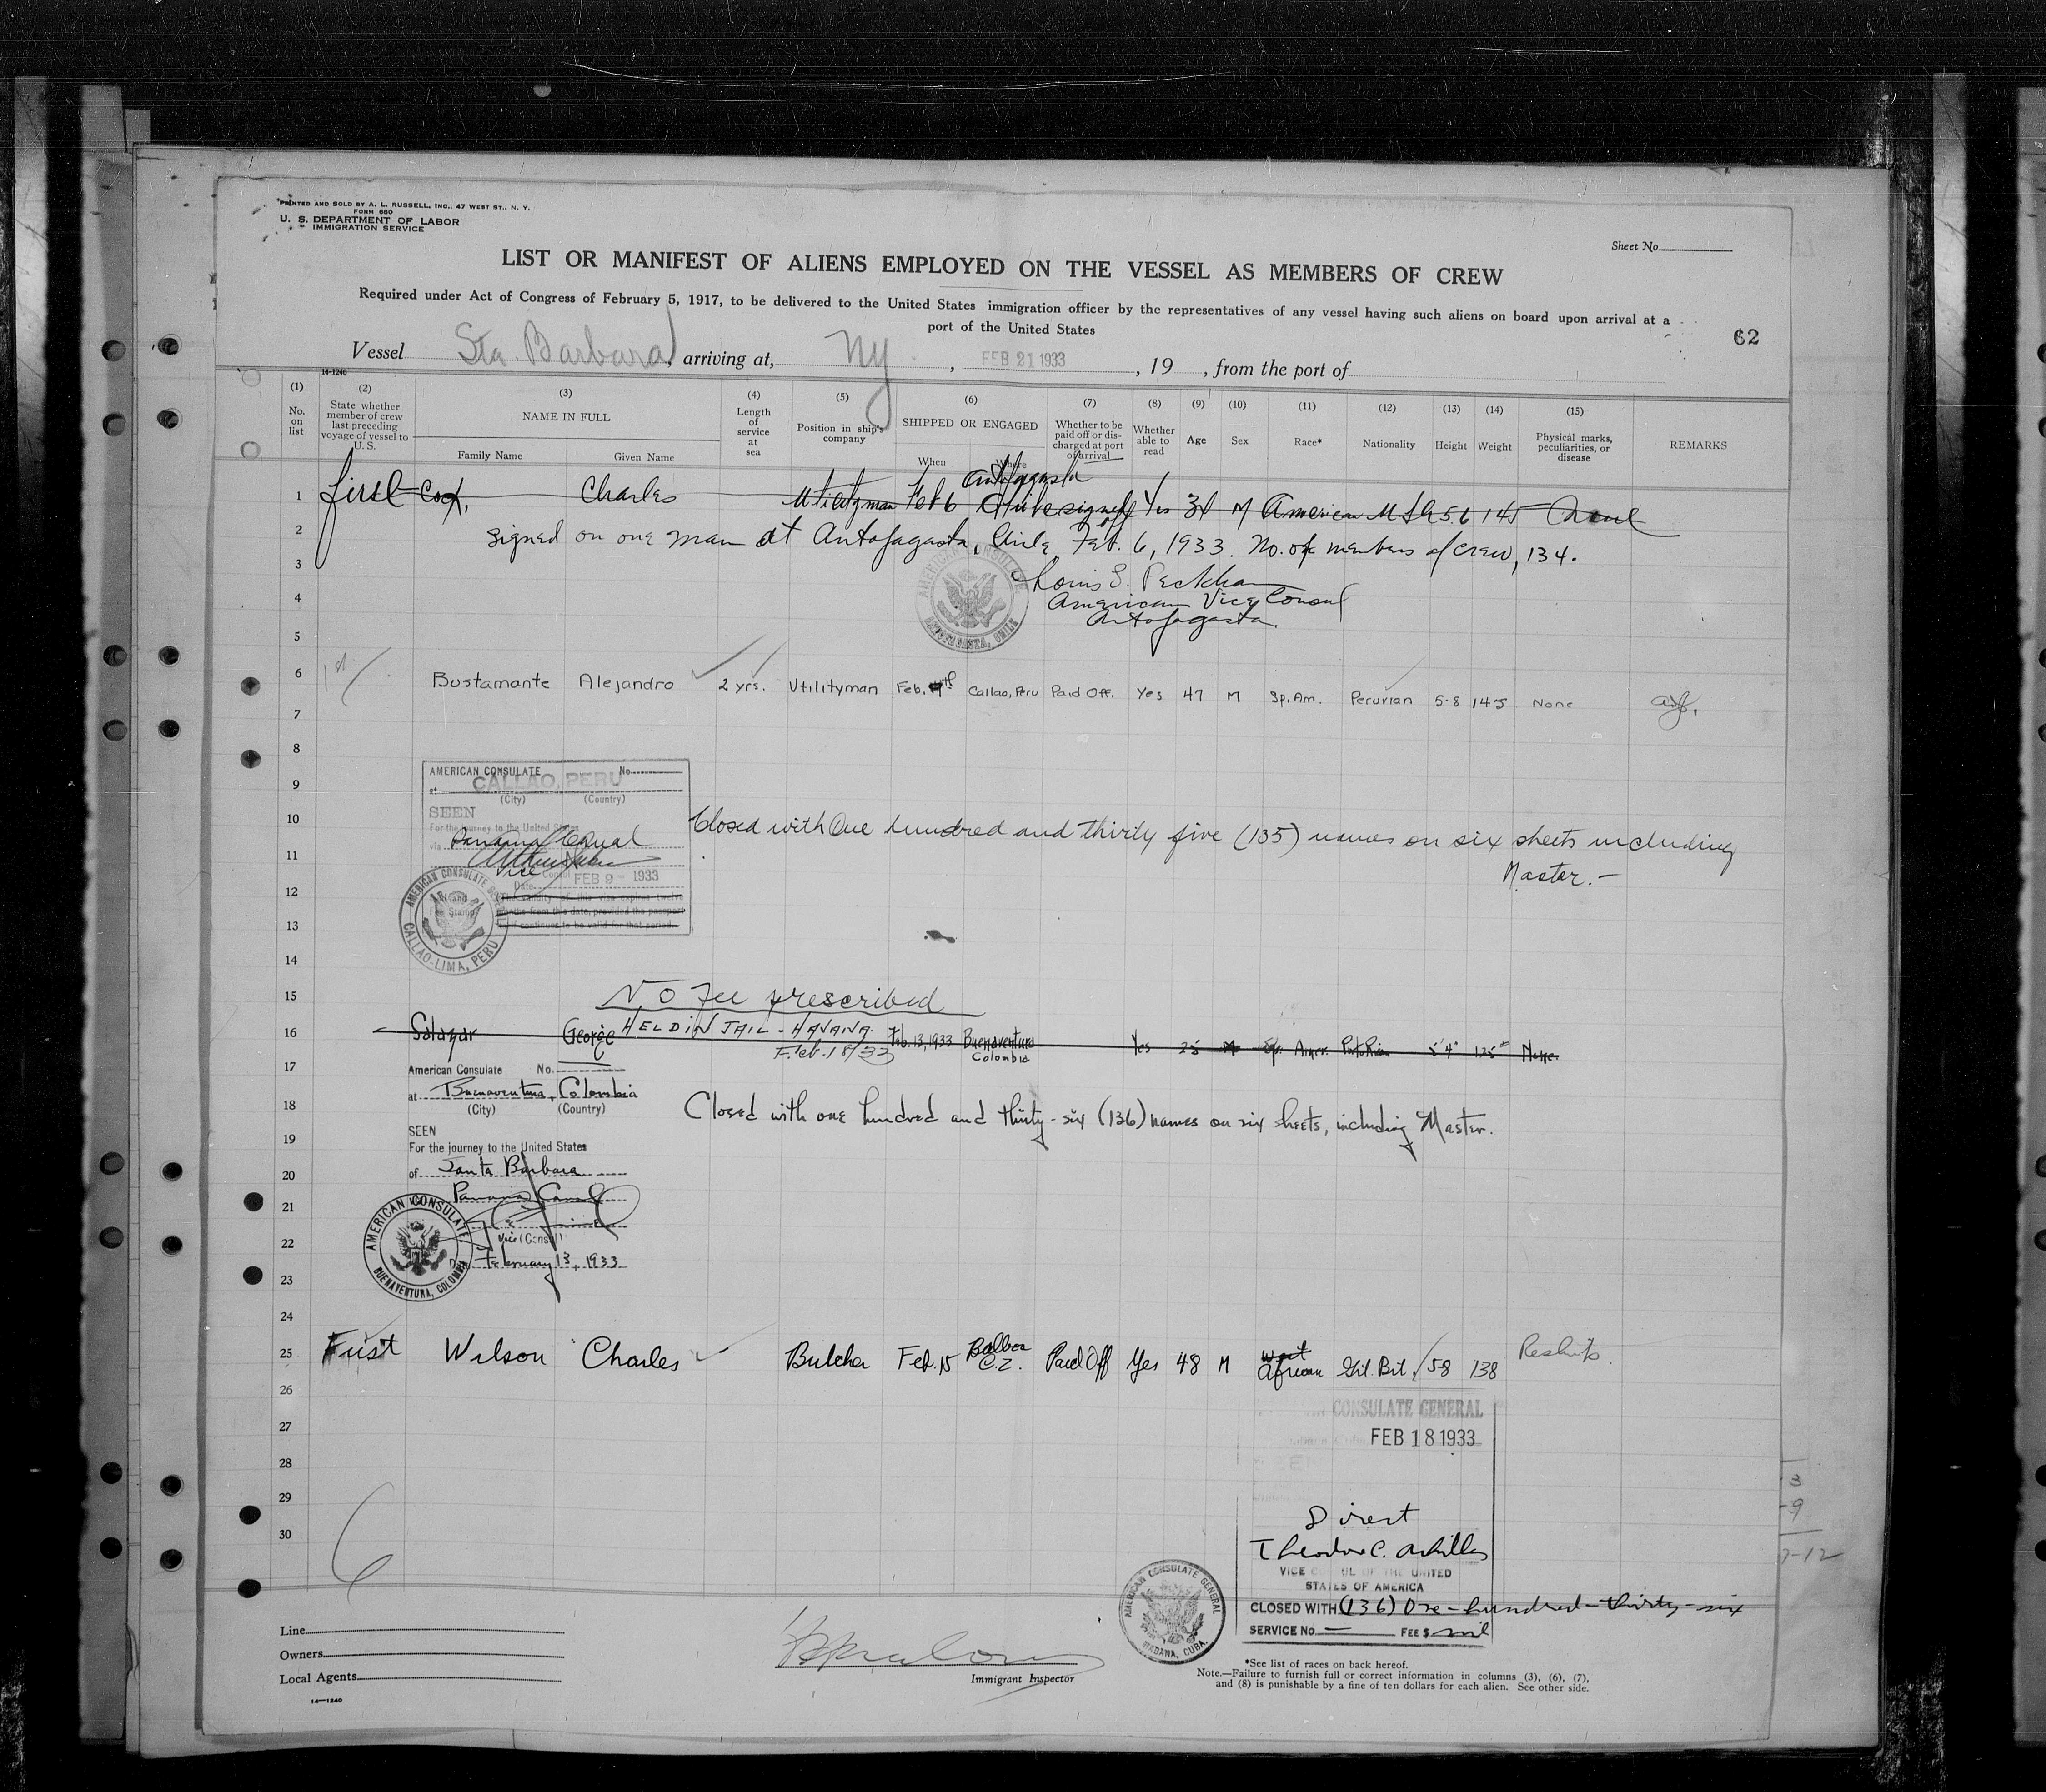 PRINTED AND SOLD BY A. L. RUSSELL, INC., 47 WEST ST., N. Y.
FORM 680
U. S. DEPARTMENT OF LABOR
IMMIGRATION SERVICE
Sheet No.
LIST OR MANIFEST OF ALIENS EMPLOYED ON THE VESSEL AS MEMBERS OF CREW
Required under Act of Congress of February 5, 1917, to be delivered to the United States immigration officer by the representatives of any vessel having such aliens on board upon arrival at a
port of the United States
62
Vessel Sta. Barbara, arriving at, NY, FEB 21 1933, 19 , from the port of
14-1240
(1) (2) (3) (4) (5) (6) (7) (8) (9) (10) (11) (12) (13) (14) (15)
No. on list
State whether member of crew last preceding voyage of vessel to U. S.
NAME IN FULL
Family Name
Given Name
Length of service at sea
Position in ship's company
SHIPPED OR ENGAGED
When
Where
Whether to be paid off or discharged at port of arrival
Whether able to read
Age
Sex
Race*
Nationality
Height
Weight
Physical marks, peculiarities, or disease
REMARKS
Antofagasta
1 first Cox, Charles Utilityman Feb 6 Chile signed off Yes M American 5.6 145 None
2 signed on one man at Antofagasta, Chile, Feb. 6, 1933. No. of members of crew, 134.
3 Louis S. Peckham
4 American Vice Consul
Antofagasta
AMERICAN CONSULATE
ANTOFAGASTA, CHILE
5
6 1st Bustamante Alejandro 2 yrs. Utilityman Feb. Callao, Peru Paid Off. Yes 47 M Sp. Am. Peruvian 5-8 145 None
7
8
AMERICAN CONSULATE No.
at CALLAO, PERU
(City) (Country)
9
SEEN
For the journey to the United States
10 Closed with One hundred and thirty five (135) names on six sheets including
Master.-
via Panama Canal
11
Vice Consul
Date FEB 9 - 1933
12
13
AMERICAN CONSULATE GENERAL
CALLAO-LIMA, PERU
14
15 No Fee prescribed
16 Salazar George HELD IN JAIL - HAVANA. Feb. 13, 1933 Buenaventura Yes 25 M Sp. Amer. Porto Rican 5'4" 125 None.
Feb. 18/33 Colombia
17
American Consulate No.
at Buenaventura, Colombia
(City) (Country)
18 Closed with one hundred and thirty-six (136) names on six sheets, including Master.
19
SEEN
For the journey to the United States
20
of Santa Barbara
Panama Canal
21
22
Vice (Consul)
February 13, 1933
23
AMERICAN CONSULATE
BUENAVENTURA, COLOMBIA
24
25 First Wilson Charles Butcher Feb. 15 Balboa C.Z. Paid Off Yes 48 M West African Brit. 58 138
26
CONSULATE GENERAL
27
FEB 18 1933
28
29
30
Direct
Theodore C. Achilles
VICE CONSUL OF THE UNITED
STATES OF AMERICA
CLOSED WITH (136) One-hundred-thirty-six
SERVICE No. — FEE $ nil
AMERICAN CONSULATE GENERAL
HABANA, CUBA.
3
-9
-12
6
Line
Owners
Local Agents
14-1240
Immigrant Inspector
*See list of races on back hereof.
Note.—Failure to furnish full or correct information in columns (3), (6), (7),
and (8) is punishable by a fine of ten dollars for each alien. See other side.